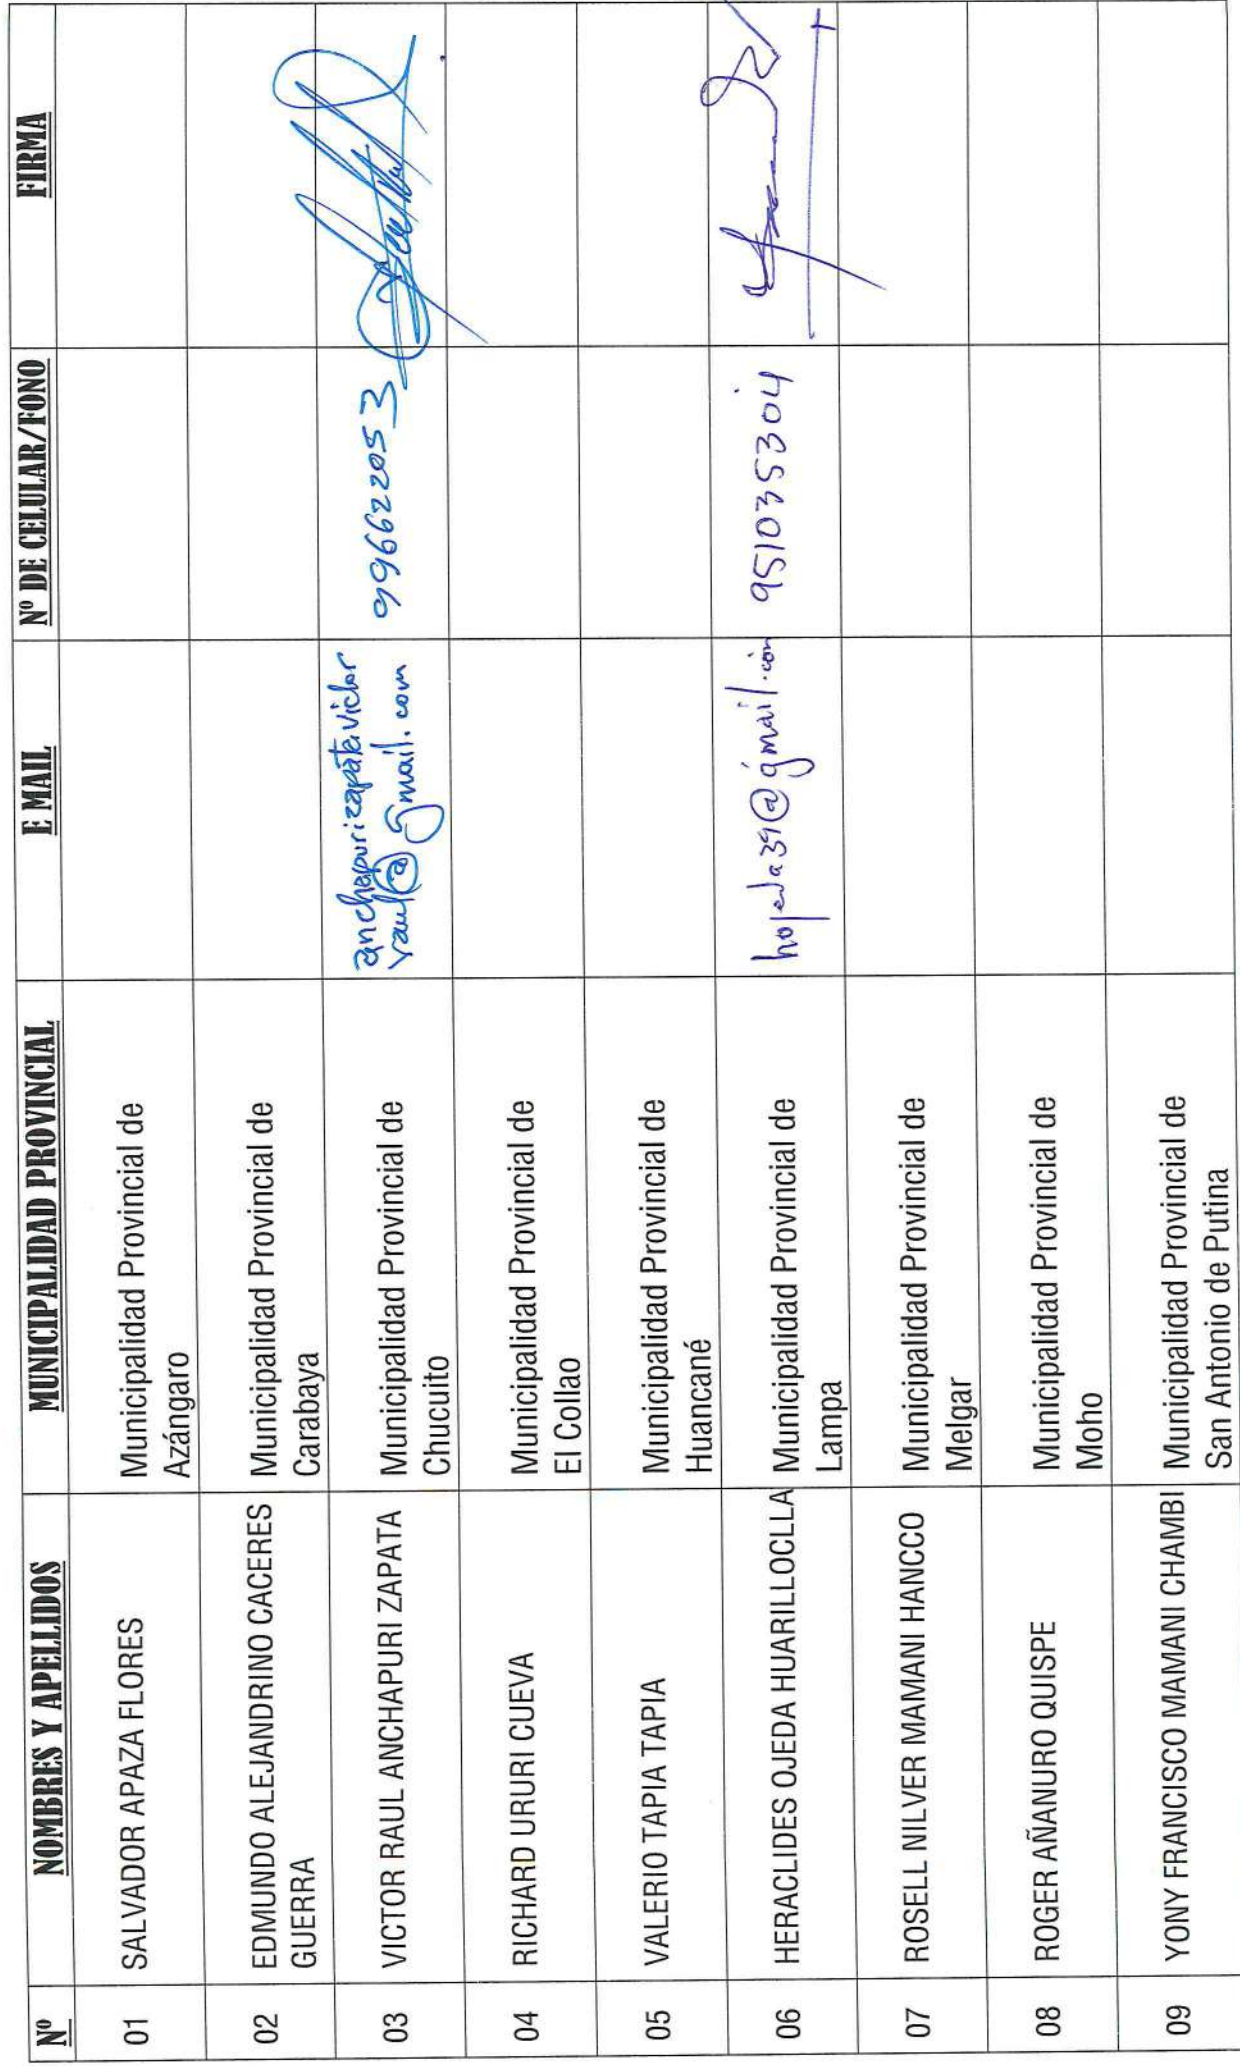 Nº NOMBRES Y APELLIDOS MUNICIPALIDAD PROVINCIAL E MAIL Nº DE CELULAR/FONO FIRMA
01 SALVADOR APAZA FLORES Municipalidad Provincial de
Azángaro
02 EDMUNDO ALEJANDRINO CACERES Municipalidad Provincial de
GUERRA Carabaya
03 VICTOR RAUL ANCHAPURI ZAPATA Municipalidad Provincial de anchapurizapatavictor 996622053
Chucuito raul@gmail.com
04 RICHARD URURI CUEVA Municipalidad Provincial de
El Collao
05 VALERIO TAPIA TAPIA Municipalidad Provincial de
Huancané
06 HERACLIDES OJEDA HUARILLOCLLA Municipalidad Provincial de 951035304
Lampa
07 ROSELL NILVER MAMANI HANCCO Municipalidad Provincial de
Melgar
08 ROGER AÑANURO QUISPE Municipalidad Provincial de
Moho
09 YONY FRANCISCO MAMANI CHAMBI Municipalidad Provincial de
San Antonio de Putina